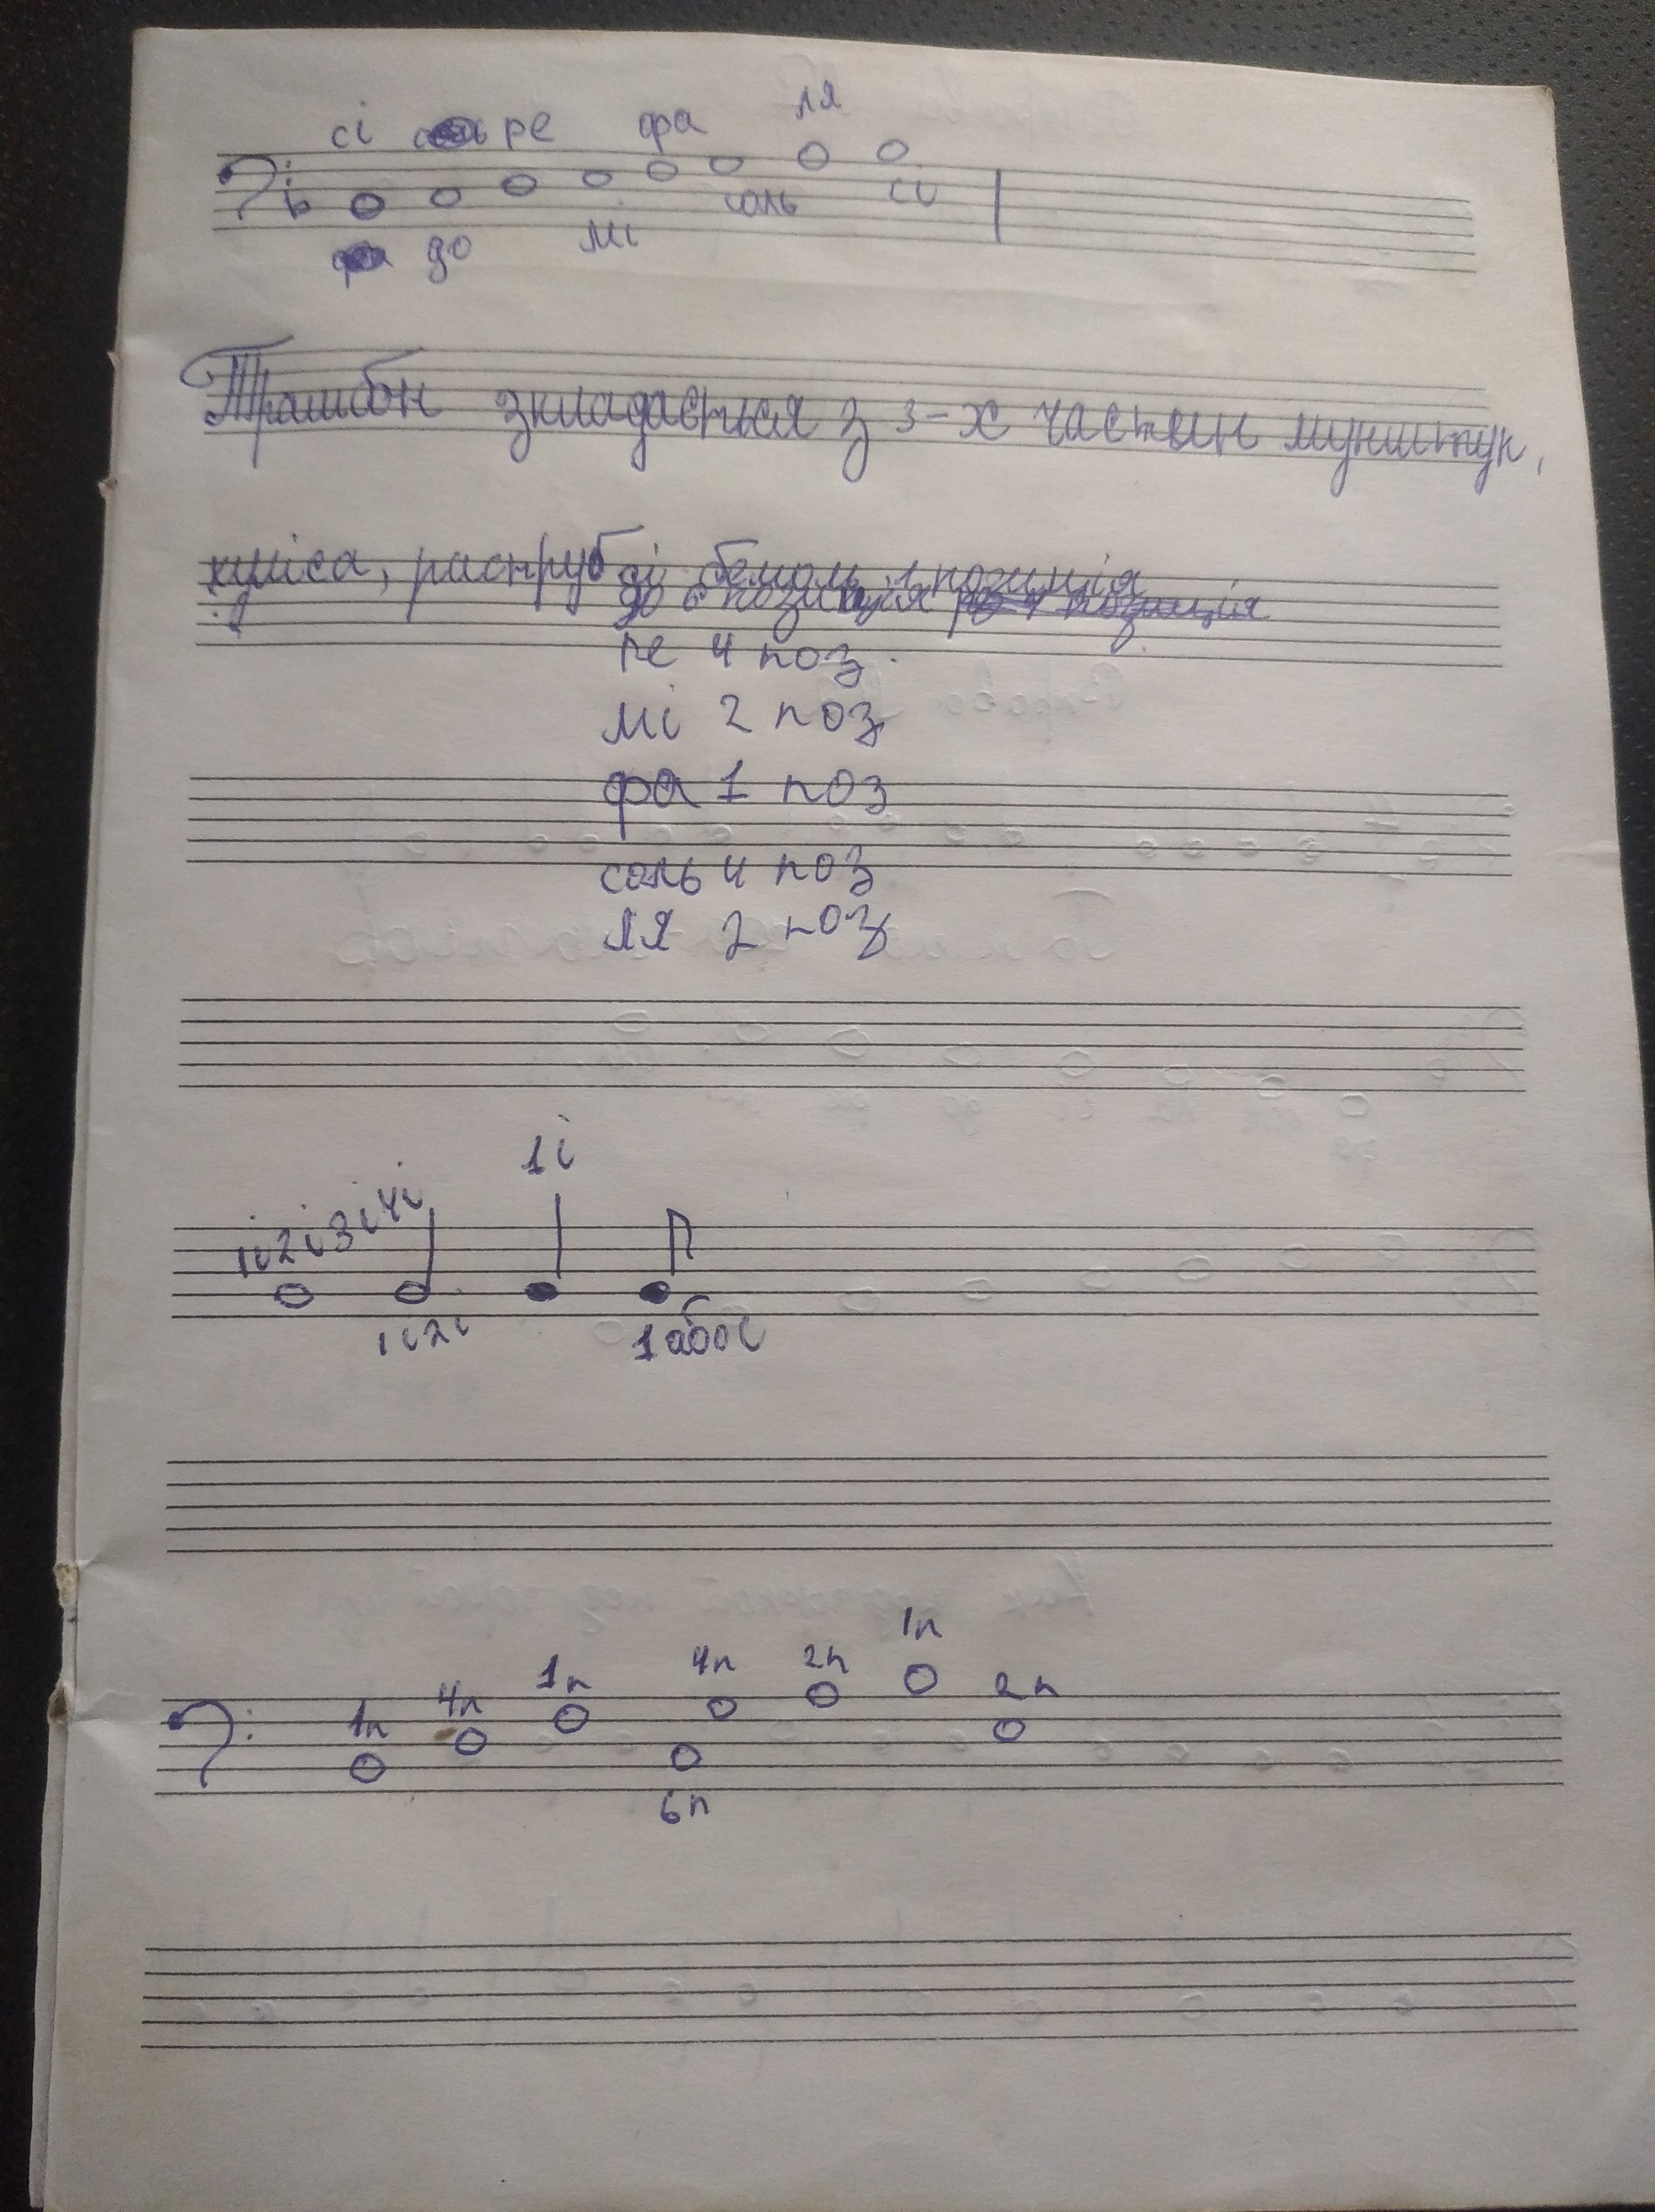 сі ре фа ля
до мі соль сі
Тромбон зкладається з 3-х частин мунштук,
куліса, раструб
сі бемоль 1 позиція
до 6 позиція
ре 4 поз.
мі 2 поз
фа 1 поз
соль 4 поз
ля 2 поз
1і2і3і4і 1і
1і2і 1або і
1п 4п 1п 4п 2п 1п 2п
6п